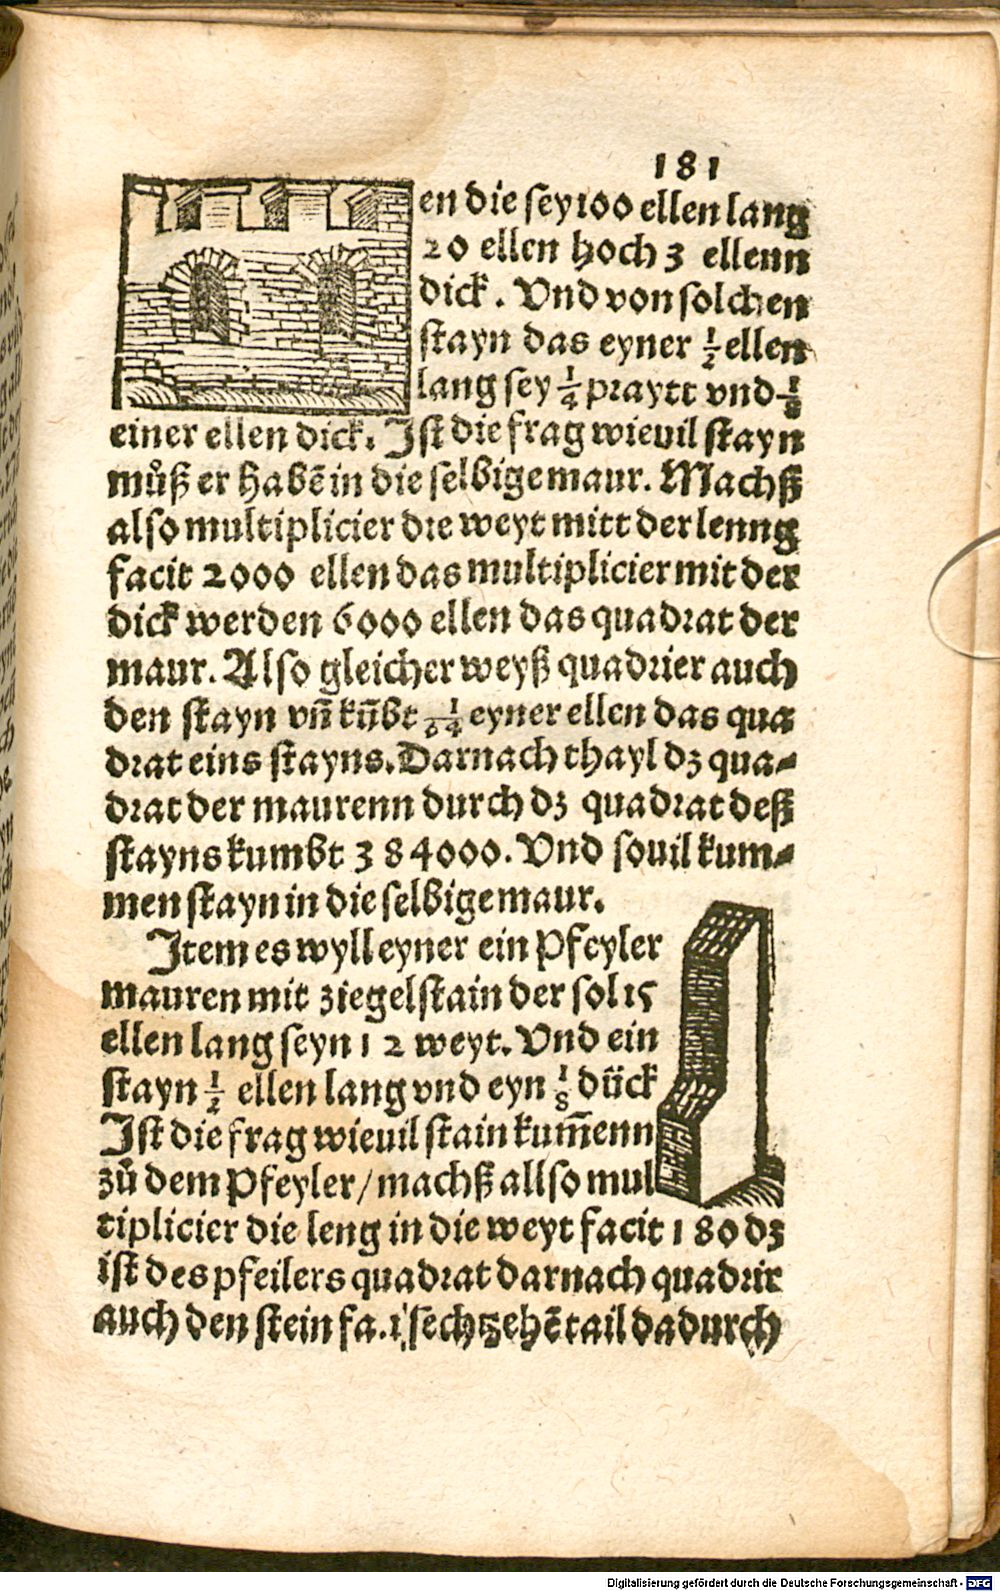 181
en die sey 100 ellen lang
20 ellen hoch 3 ellenn
dick. Vnd von solchen
stayn das eyner 1/2 ellen
lang sey 1/4 praytt vnd 1/8
einer ellen dick. Jst die frag wieuil stayn
můß er habē in die selbige maur. Machß
also multiplicier die weyt mitt der lenng
facit 2000 ellen das multiplicier mit der
dick werden 6000 ellen das quadrat der
maur. Also gleicher weyß quadrier auch
den stayn vn̄ kūbt 1/64 eyner ellen das qua
drat eins stayns. Darnach thayl dz qua-
drat der maurenn durch dz quadrat deß
stayns kumbt 384000. Vnd souil kum-
men stayn in die selbige maur.
Jtem es wyll eyner ein Pfeyler
mauren mit ziegelstain der sol 15
ellen lang seyn 12 weyt. Vnd ein
stayn 1/2 ellen lang vnd eyn 1/8 dück
Jst die frag wieuil stain kum̄enn
zů dem Pfeyler/machß allso mul
tiplicier die leng in die weyt facit 180 dz
ist des pfeilers quadrat darnach quadrir
auch den stein fa. 1 sechtzehē tail dadurch
Digitalisierung gefördert durch die Deutsche Forschungsgemeinschaft - DFG